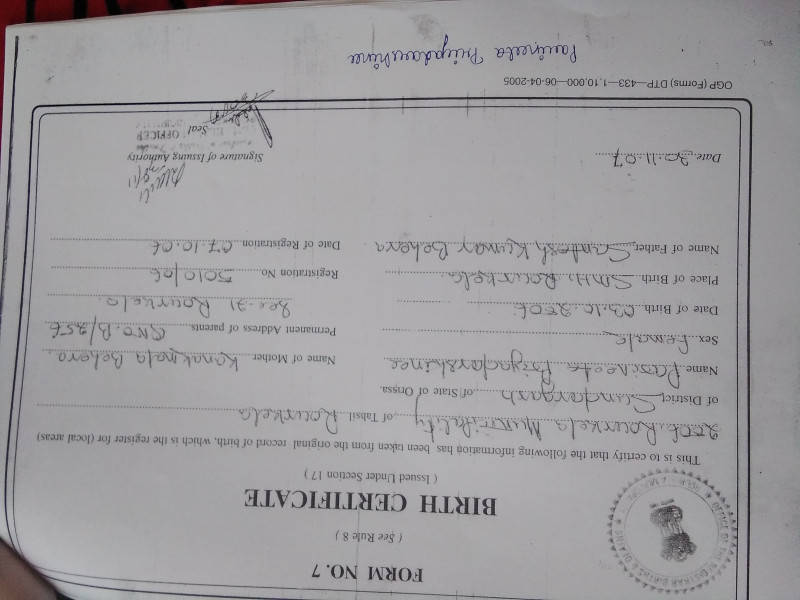 FORM NO. 7
( See Rule 8 )
BIRTH CERTIFICATE
( Issued Under Section 17 )
This is to certify that the following information has been taken from the original record of birth, which is the register for (local areas)
2006 Rourkela Municipality of Tahsil Rourkela
of District Sundargarh of State of Orissa.
Name Parineeta Priyadarshinee
Name of Mother Kanakmala Behera
Sex Female
Permanent Address of parents QNO. B/256
Sec-21 Rourkela.
Date of Birth 03.10.2006
Registration No. 5010/06
Place of Birth SMH, Rourkela.
Date of Registration 07.10.06
Name of Father Santosh Kumar Behera
Date 20.11.07
Signature of Issuing Authority
Seal
OFFICER
OGP (Forms) DTP—433—1,10,000—06-04-2005
Parineeta Priyadarshinee